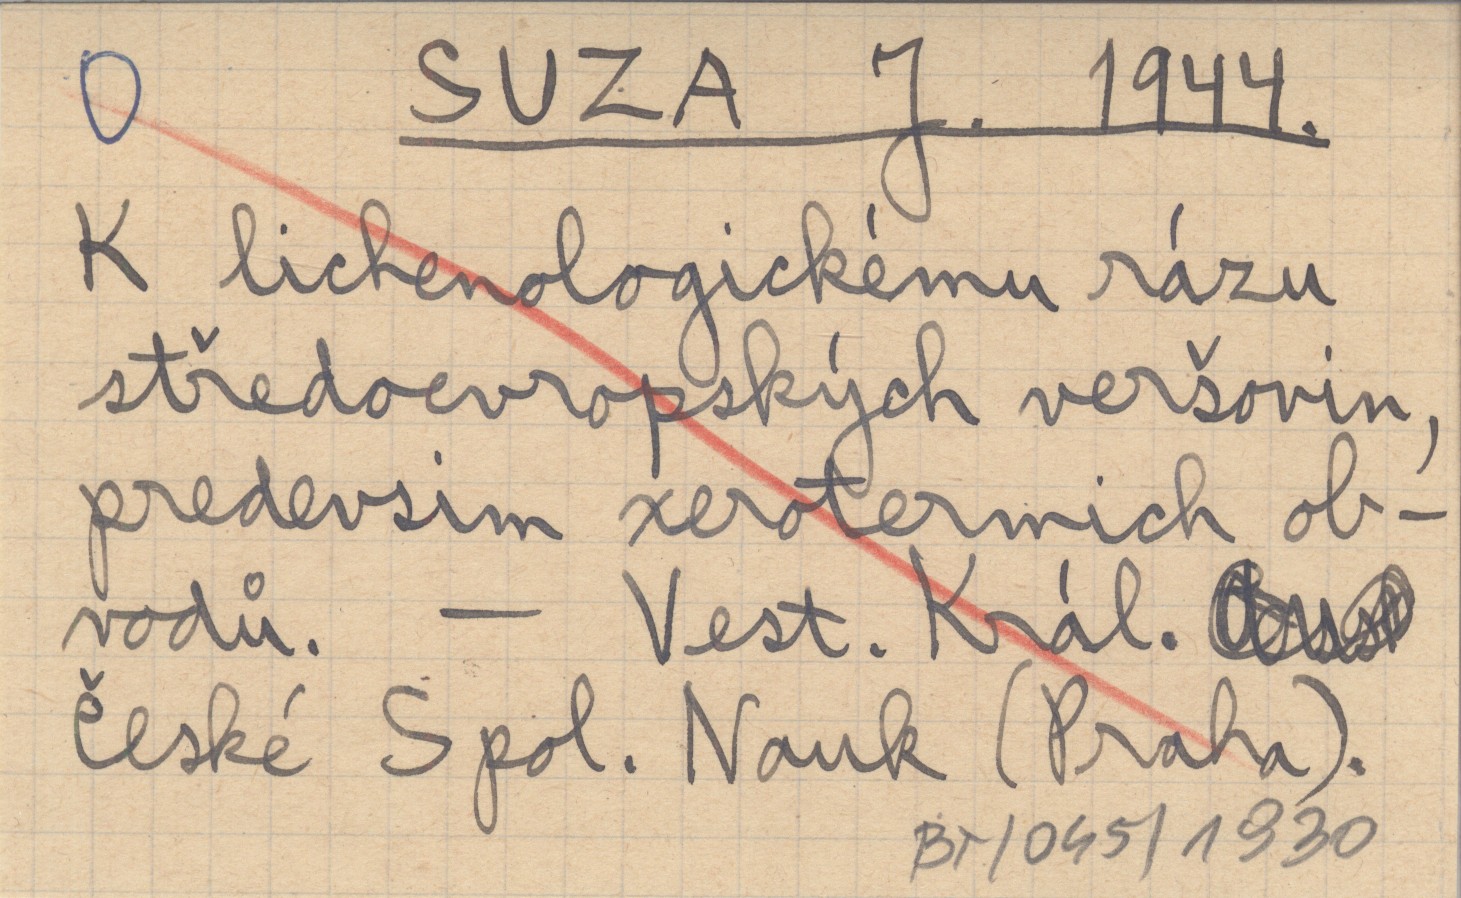 O SUZA J. 1944.
K lichenologickému rázu
středoevropských veršovin,
predevsim xerotermich ob-
vodů. — Vest. Král.
České Spol. Nauk (Praha).
BT/045/1930